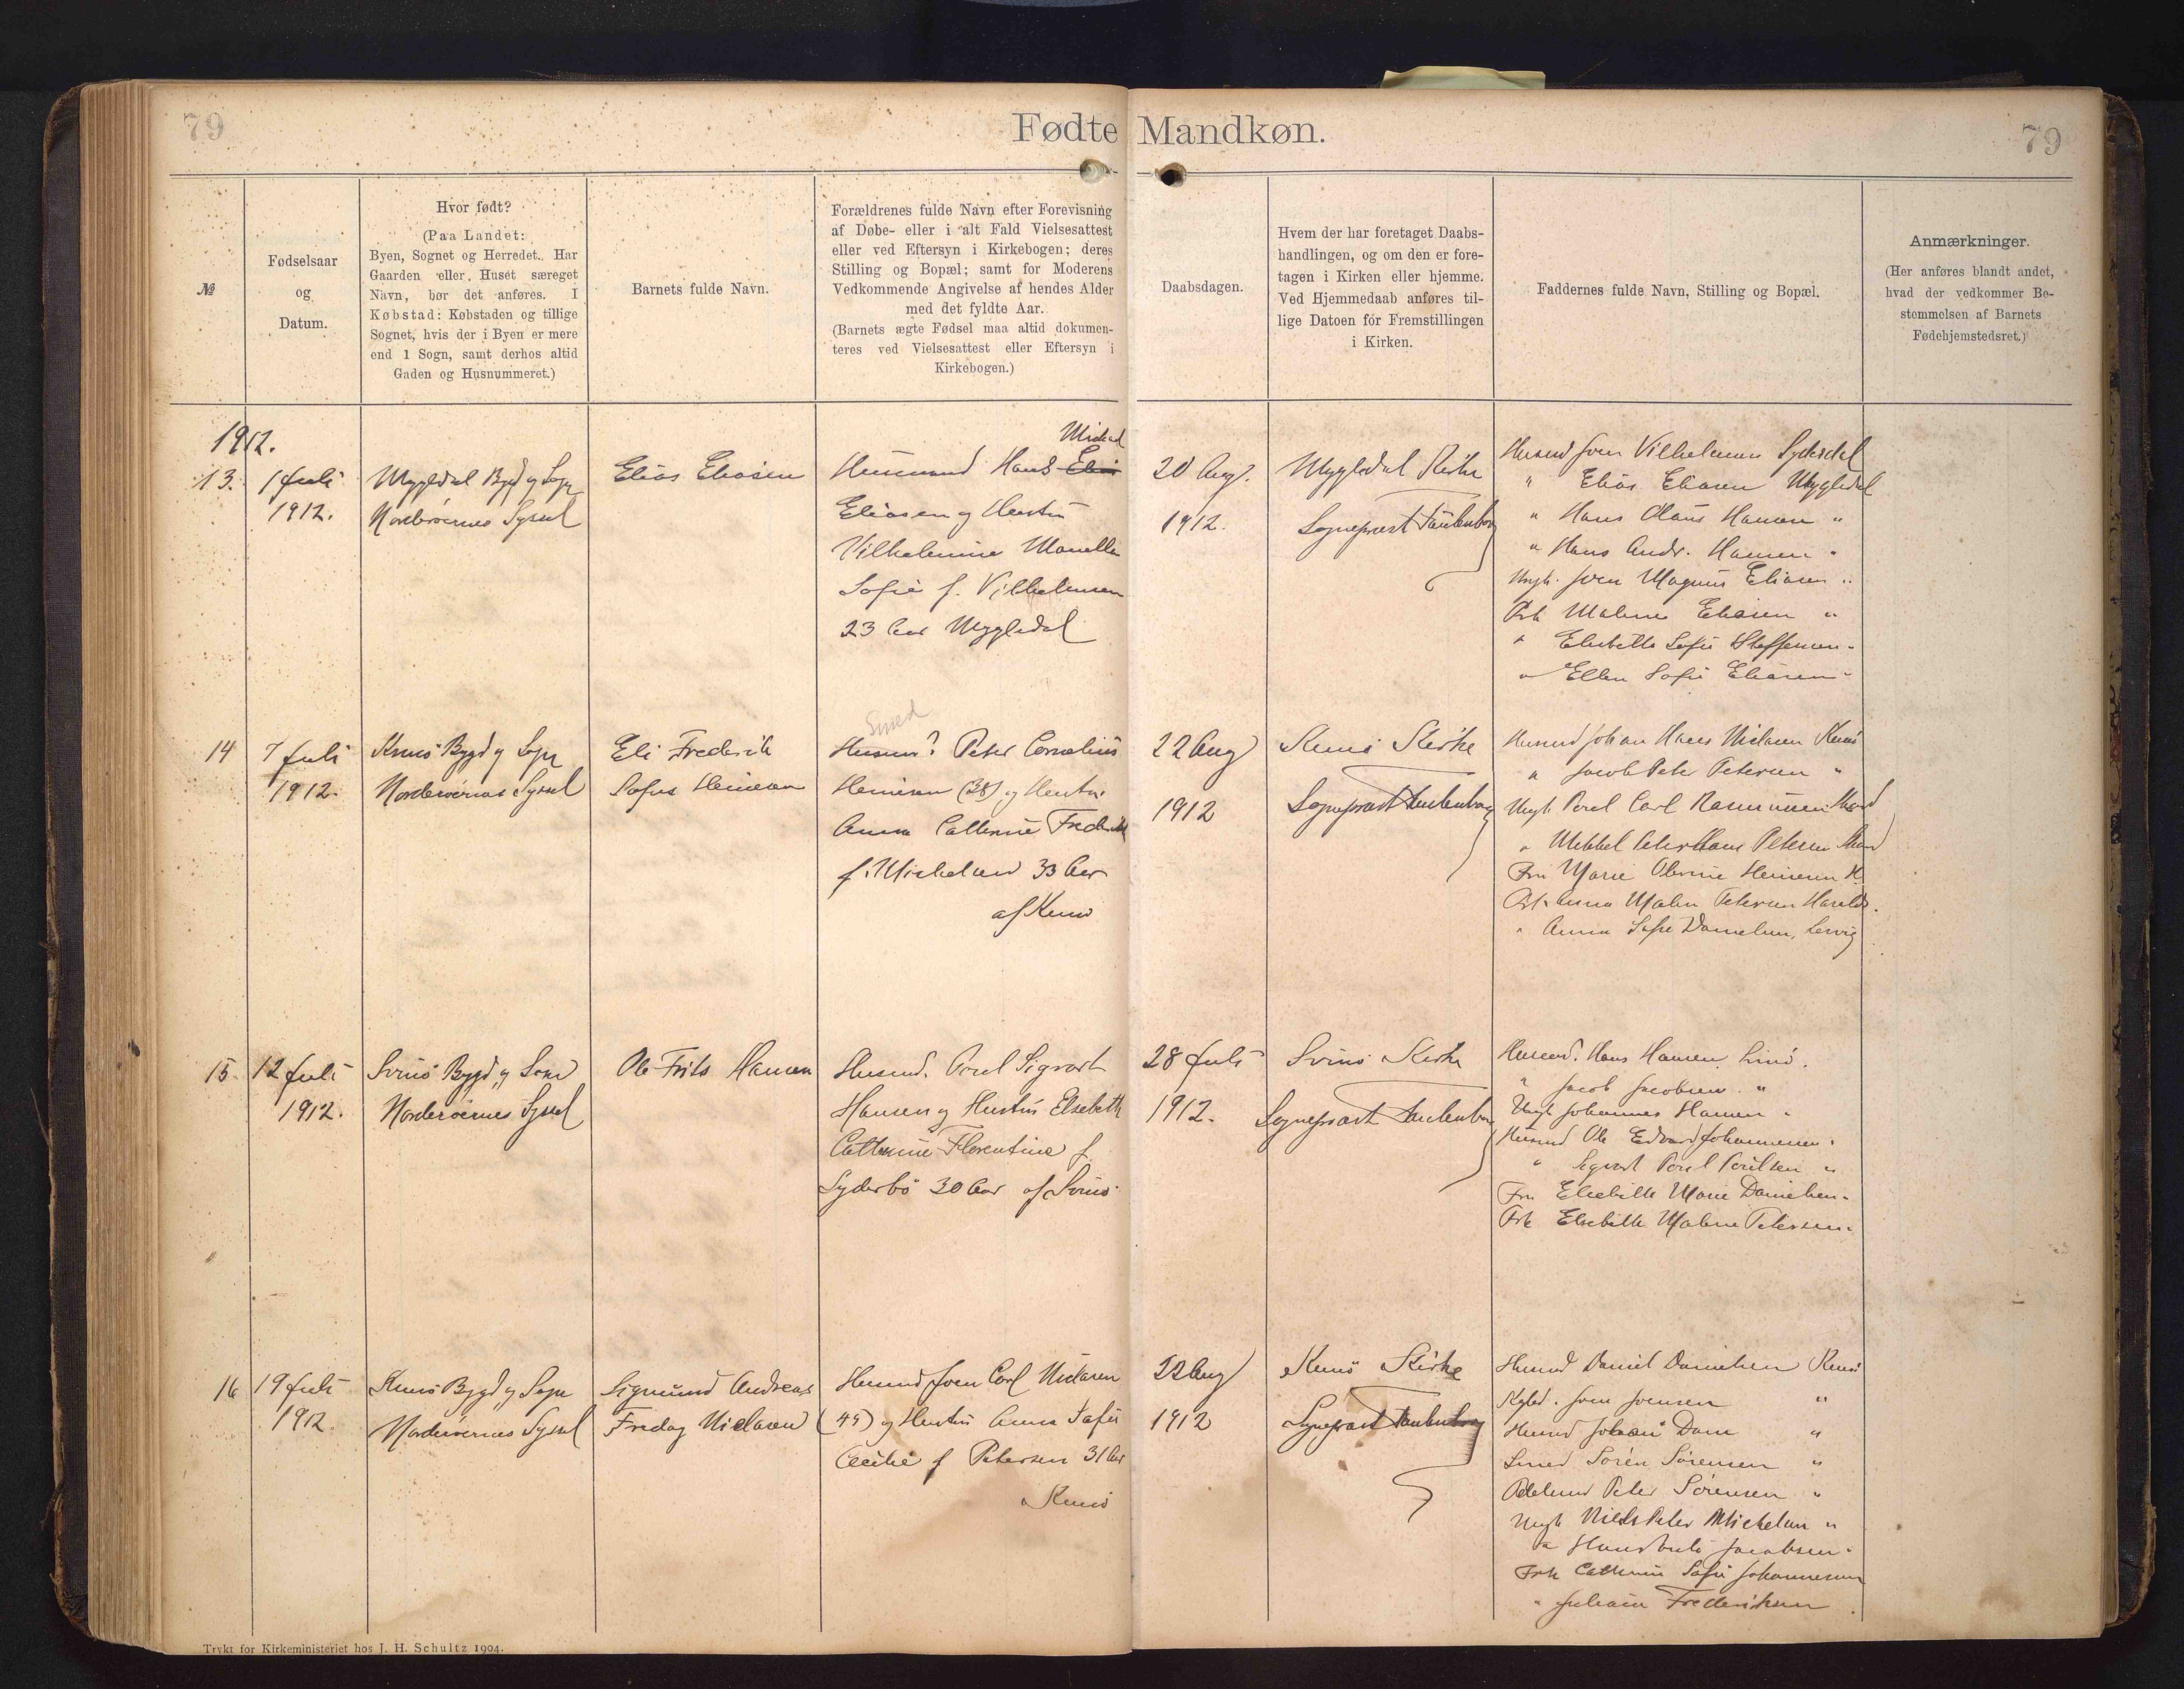 79
Fødte Mandkøn.
79
№
Fødselsaar
og
Datum.
Hvor født?
(Paa Landet:
Byen, Sognet og Herredet. Har
Gaarden eller Huset særeget
Navn, bør det anføres. I
Købstad: Købstaden og tillige
Sognet, hvis der i Byen er mere
end 1 Sogn, samt derhos altid
Gaden og Husnummeret.)
Barnets fulde Navn.
Forældrenes fulde Navn efter Forevisning
af Døbe- eller i alt Fald Vielsesattest
eller ved Eftersyn i Kirkebogen; deres
Stilling og Bopæl; samt for Moderens
Vedkommende Angivelse af hendes Alder
med det fyldte Aar.
(Barnets ægte Fødsel maa altid dokumen-
teres ved Vielsesattest eller Eftersyn i
Kirkebogen.)
Daabsdagen.
Hvem der har foretaget Daabs-
handlingen, og om den er fore-
tagen i Kirken eller hjemme.
Ved Hjemmedaab anføres til-
lige Datoen for Fremstillingen
i Kirken.
Faddernes fulde Navn, Stilling og Bopæl.
Anmærkninger.
(Her anføres blandt andet,
hvad der vedkommer Be-
stemmelsen af Barnets
Fødehjemstedsret.)
1912.
13.
1 Juli
1912.
Mygledal Bygd og Sogn
Norderøernes Syssel
Elias Eliasen
Husmand Hans
Eliasen og Hustru
Vilhelmine
Sofie f. Vilhelmsen
23 Aar Mygledal
20 Aug.
1912.
Mygledal Kirke
Sognepræst
Husmd Joen Vilhelmsen Syderdal
" Elias Eliasen Mygledal
" Hans Olaus Hansen "
" Hans Andr. Hansen "
Ungk. Joen Magnus Eliasen "
Frk Malene Eliasen "
" Elsebeth Sofie Steffensen "
" Ellen Sofie Eliasen "
14
7 Juli
1912.
Kunø Bygd og Sogn
Norderøernes Syssel
Eli Frederik
Sofus Heinesen
Smed
Husm? Peter Cornelius
Heinesen (38) og Hustru
Anna Cathrine Frederikke
f. Michelsen 33 Aar
af Kunø
22 Aug
1912
Kunø Kirke
Sognepræst
Husmd Johan Hans Niclasen Kunø
" Jacob Peter Petersen "
Ungk Poul Carl Rasmussen
" Mikkel Peter Hans Petersen
Fru Marie Heinesen
Frk Anna Malene Petersen Haralds.
" Anna Sofie Danielsen, Lervig
15.
12 Juli
1912.
Svinø Bygd og Sogn
Norderøernes Syssel
Ole Frits Hansen
Husmd. Poul Sigvart
Hansen og Hustru Elsebeth
Cathrine Florentine f.
Syderbø 30 Aar af Svinø
28 Juli
1912.
Svinø Kirke
Sognepræst
Husmd. Hans Hansen Svinø.
" Jacob Jacobsen "
Ungk Johannes Hansen "
Husmd Ole Edvard Johannesen "
" Sigvart Poul Poulsen "
Fru Elsebeth Marie Danielsen "
Frk Elsebeth Malene Petersen "
16
19 Juli
1912
Kunø Bygd og Sogn
Norderøernes Syssel
Sigmund Andreas
Fredag Niclasen
Husmd Joen Carl Niclasen
(45) og Hustru Anna Sofie
Cecilie f Petersen 31 Aar
Kunø
22 Aug
1912
Kunø Kirke
Sognepræst
Husmd Daniel Danielsen Kunø
Joen Joensen "
Husmd Dam "
Smed Søren Sørensen "
Peter Sørensen "
Ungk Niels Peter Michelsen "
" Jacobsen "
Frk Cathrine Sofie Johannesen
" Frederiksen
Trykt for Kirkeministeriet hos J. H. Schultz 1904.